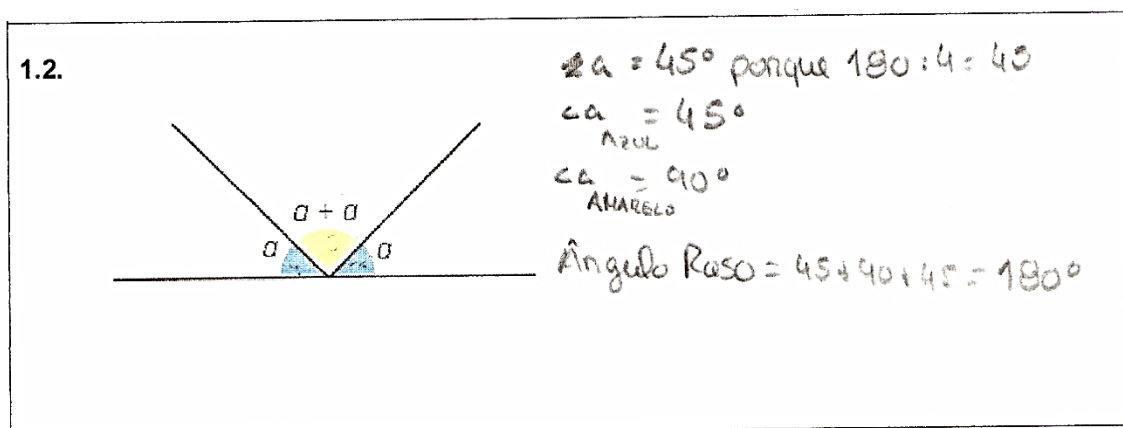 1.2.
∠a = 45° porque 180 : 4 = 45
∠a AZUL = 45°
∠a AMARELO = 90°
a + a
a a
Ângulo Raso = 45 + 90 + 45 = 180°